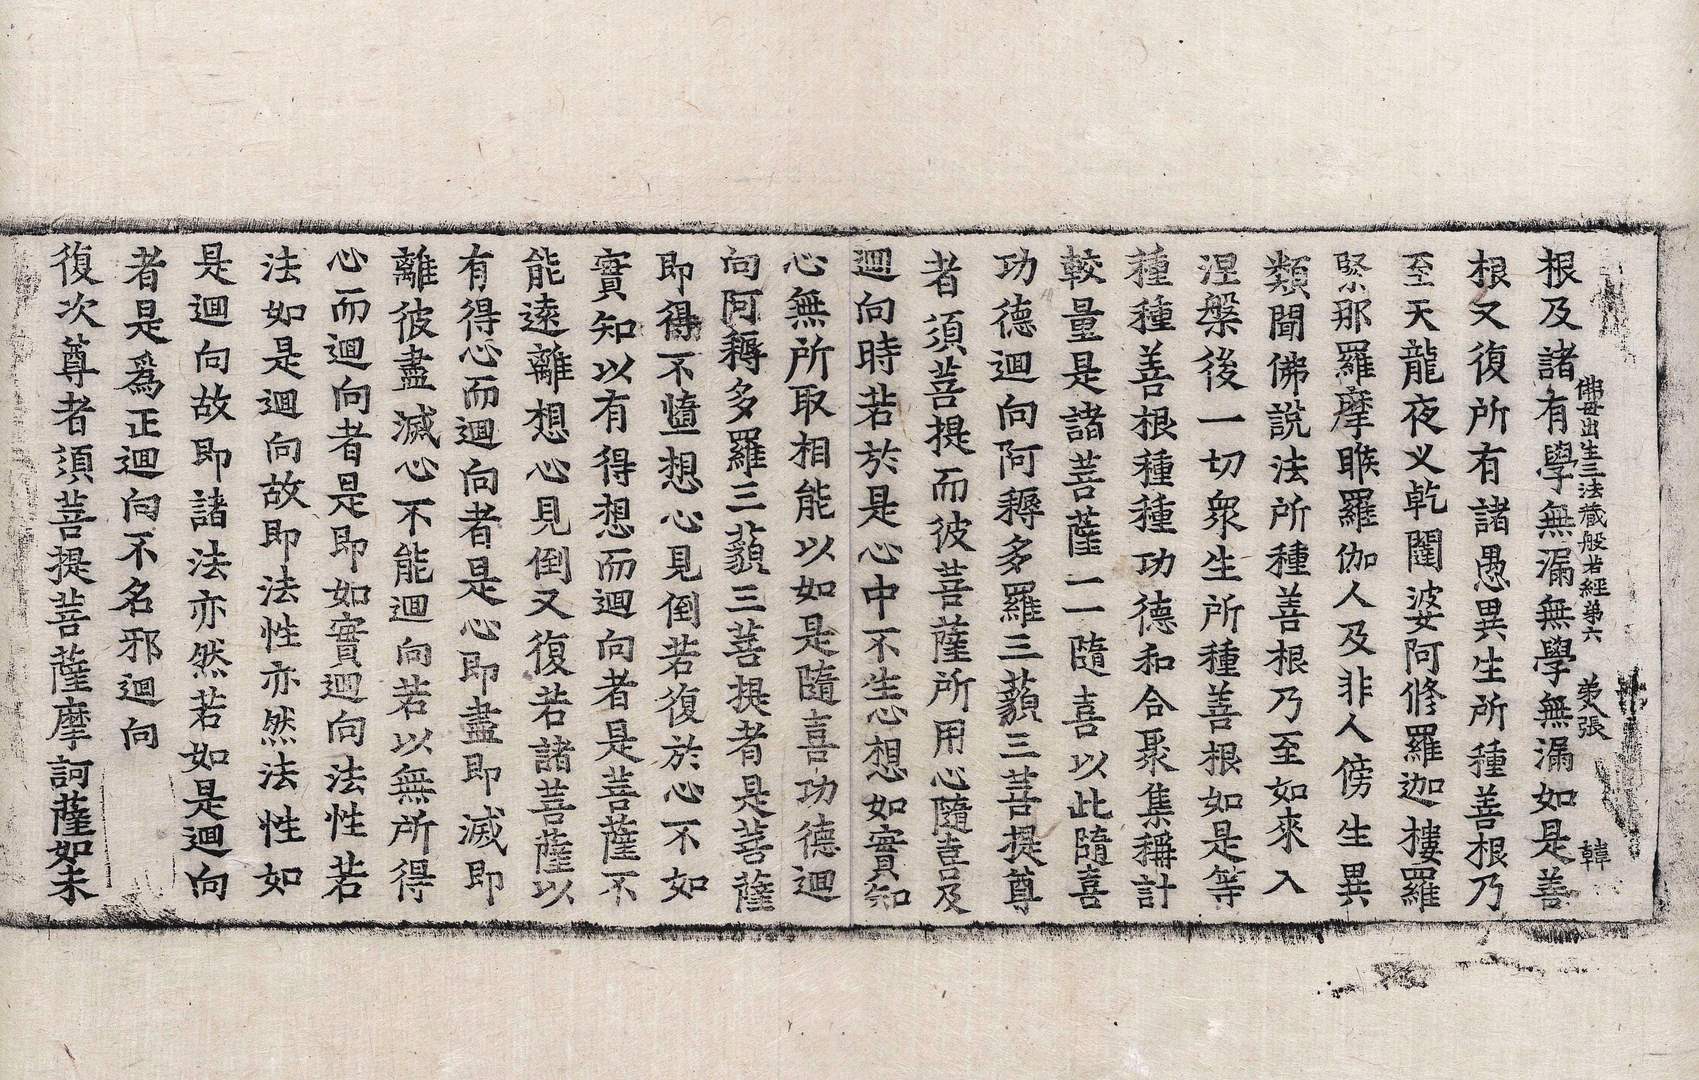 佛母出生三法藏般若經第六 第張 韓
根及諸有學無漏無學無漏如是善
根又復所有諸愚異生所種善根乃
至天龍夜叉乾闥婆阿修羅迦樓羅
緊那羅摩睺羅伽人及非人傍生異
類聞佛說法所種善根乃至如來入
涅槃後一切衆生所種善根如是等
種種善根種種功德和合聚集稱計
較量是諸菩薩一一隨喜以此隨喜
功德迴向阿耨多羅三藐三菩提尊
者須菩提而彼菩薩所用心隨喜及
迴向時若於是心中不生心想如實知
心無所取相能以如是隨喜功德迴
向阿耨多羅三藐三菩提者是菩薩
即得不墮想心見倒若復於心不如
實知以有得想而迴向者是菩薩不
能遠離想心見倒又復若諸菩薩以
有得心而迴向者是心即盡即滅即
離彼盡滅心不能迴向若以無所得
心而迴向者是即如實迴向法性若
法如是迴向故即法性亦然法性如
是迴向故即諸法亦然若如是迴向
者是爲正迴向不名邪迴向
復次尊者須菩提菩薩摩訶薩如未